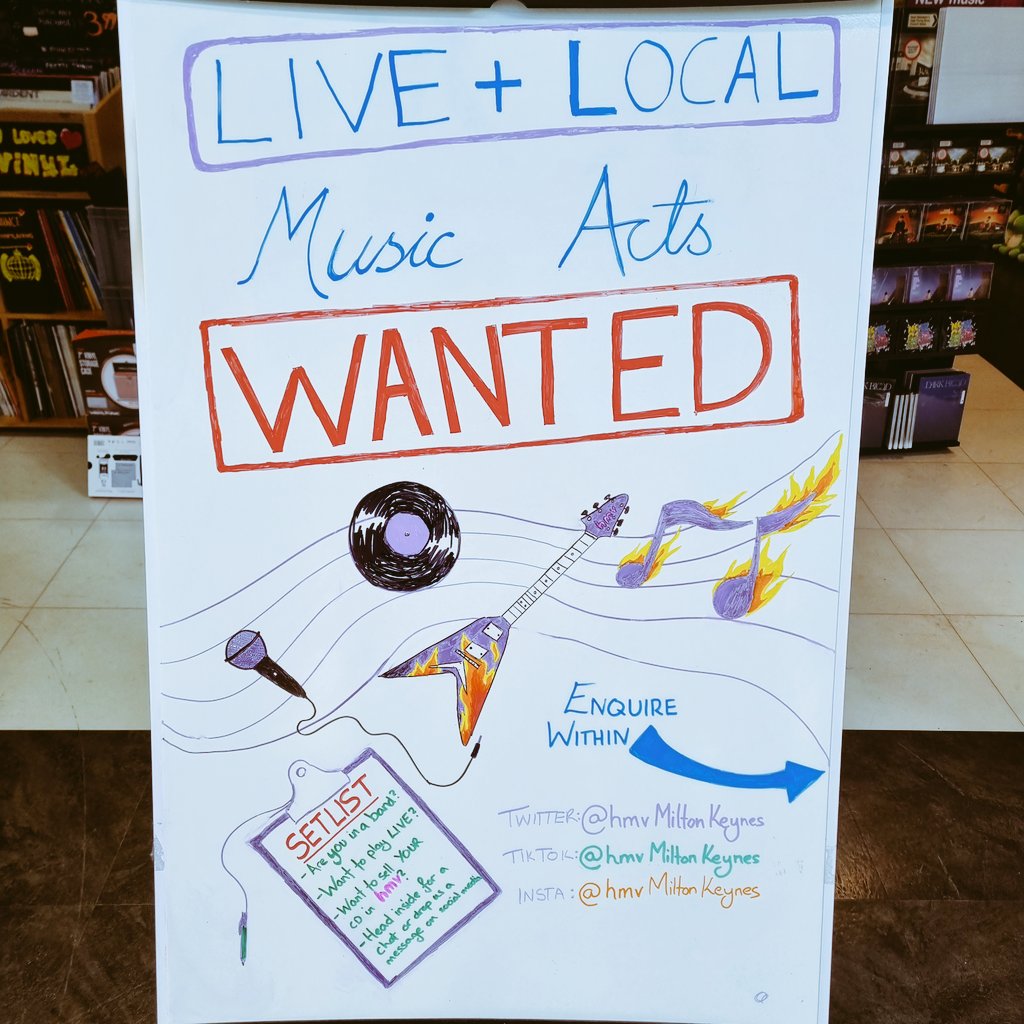 LIVE + LOCAL
Music Acts
WANTED
ENQUIRE
WITHIN
TWITTER: @hmvMiltonKeynes
TIKTOK: @hmvMiltonKeynes
INSTA: @hmvMiltonKeynes
SETLIST
- Are you in a band?
- Want to play LIVE?
- Want to sell YOUR
CD in hmv?
- Head inside for a
chat or drop us a
message on social media
LOVES
VINYL
New music